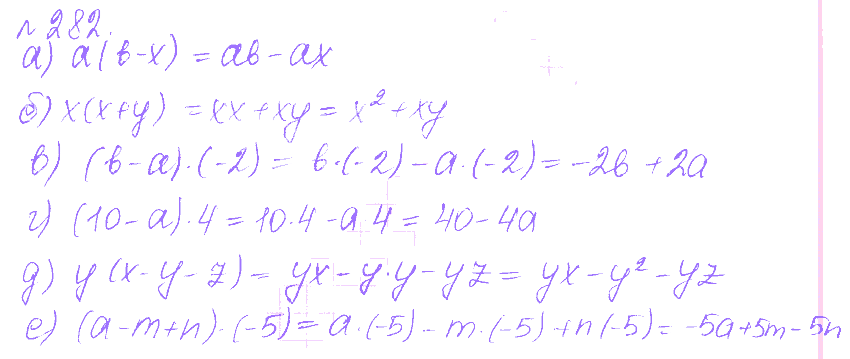 № 282.
а) a(b-x) = ab - ax
б) x(x+y) = xx + xy = x² + xy
в) (b-a)·(-2) = b·(-2) - a·(-2) = -2b + 2a
г) (10-a)·4 = 10·4 - a·4 = 40 - 4a
д) y(x-y-z) = yx - y·y - yz = yx - y² - yz
е) (a-m+n)·(-5) = a·(-5) - m·(-5) + n(-5) = -5a+5m-5n